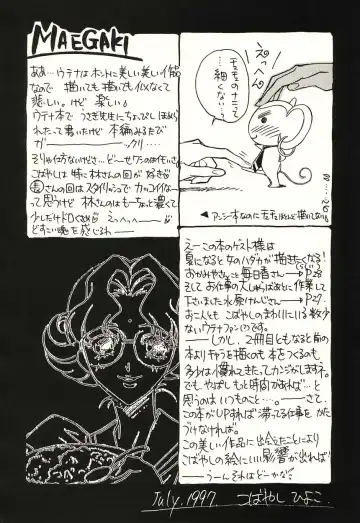 MAEGAKI
ああ…ウテナはホントに美しい美しい作品
なので 描いても描いても似なくて
悲しい。けど 楽しい♪
ウテナ本で うさぎ先生にちょっぴし ほめら
れたって書いたけど 本編みるたび
ガーーーーーーーックリ…
こばやしは 特に 林さんの回が 好き
さんの回は スタイリッシュで カッコイイなー
って思うけど 林さんのはもーちょっと濃くて
えっへん
チュチュのナニって
細くない…?
えー この本のゲスト様は
夏になると女のハダカが描きたくなる!
おかみやさんこと 毎日香さん→P.28
そして お仕事の入しゃらばあとに作業して
下さいました 水原けんじさん→P.29.
お二人とも こばやしのまわりにいる数少
ないウテナファン(?)です。
――しかし、2冊目ともなると前の
本より キャラを描くのも 本をつくるのも
多少は慣れてきたってカンジがしますネ。
でも、やぱし もっと時間があれば…と
思うのは いつものこと…。――さて、
この本がUPすれば 溜ってる仕事を かた
づけなければ。
この美しい作品に 出会えたことにより
こばやしの絵にいい影響が出れば!
――うーん それはどーかな?
July.1997. こばやし ひよこ